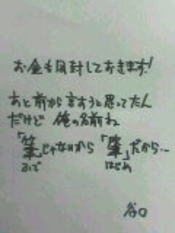 お金も用計しておきます!
あと前から言おうと思ってたん
だけど 俺の名前ね
「筆」じゃなくから 「肇」だから…
ふで
はじめ
谷口